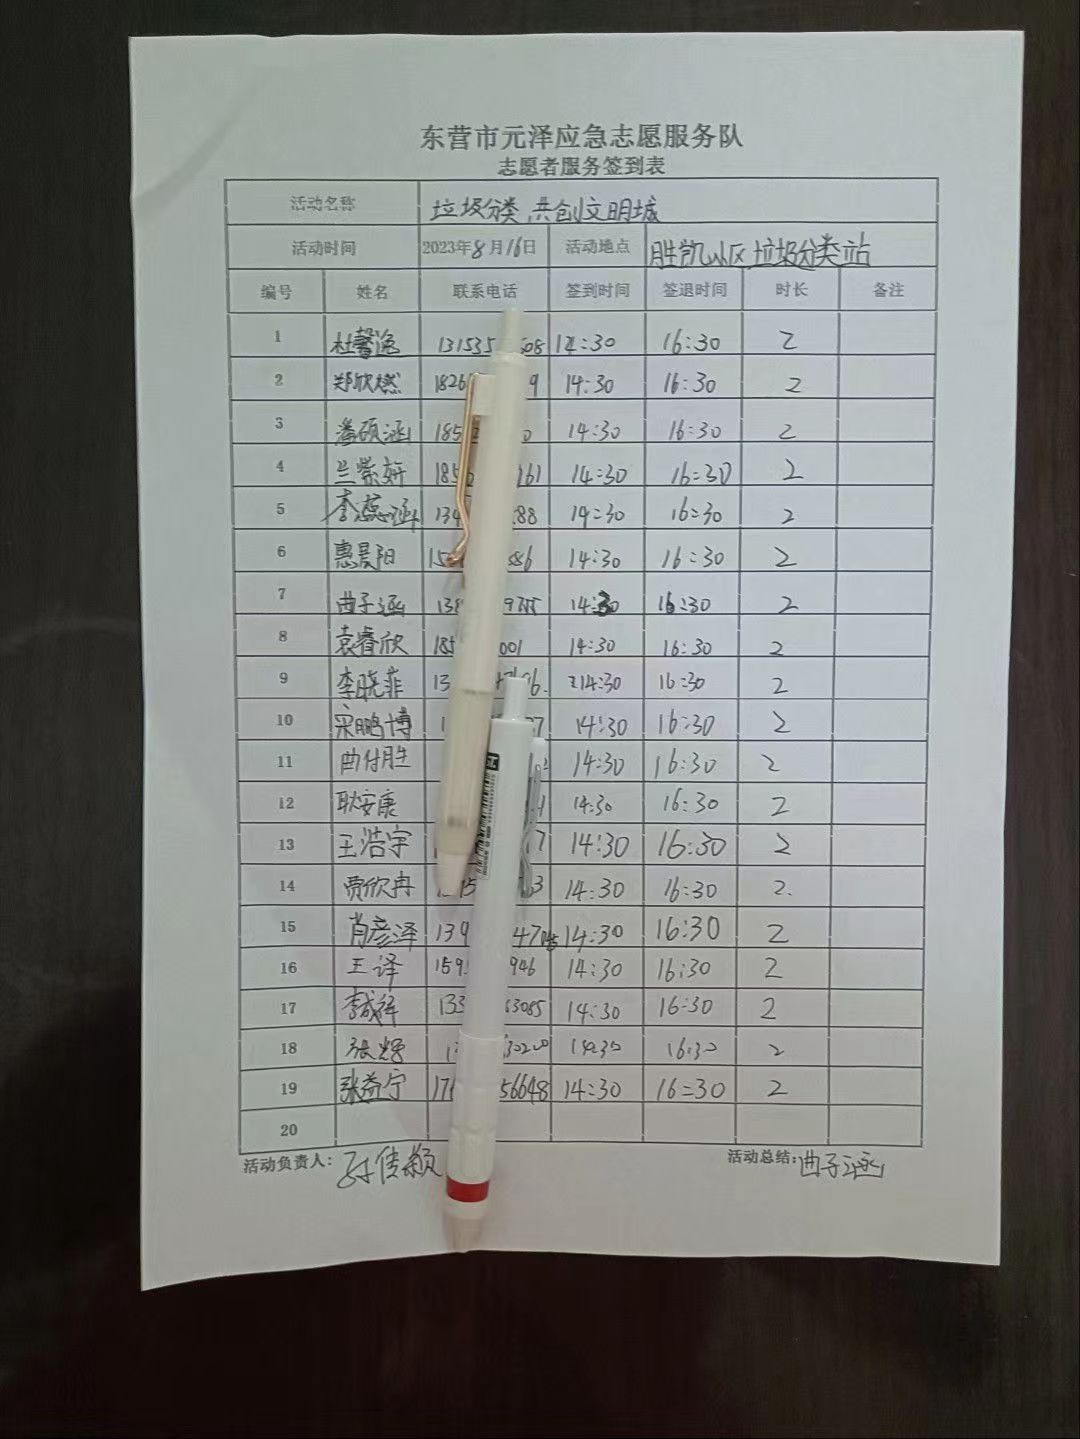 东营市元泽应急志愿服务队
志愿者服务签到表
活动名称 垃圾分类,共创文明城
活动时间 2023年8月16日 活动地点 胜凯小区垃圾分类站
编号 姓名 联系电话 签到时间 签退时间 时长 备注
1 杜馨逸 13153 508 14:30 16:30 2
2 郑欣燃 1826 9 14:30 16:30 2
3 潘硕涵 185 0 14:30 16:30 2
4 兰紫妍 185 161 14:30 16:30 2
5 李蕊涵 134 88 14:30 16:30 2
6 惠晨阳 15 886 14:30 16:30 2
7 曲子涵 138 14:30 16:30 2
8 袁睿欣 185 001 14:30 16:30 2
9 李晓菲 13 6. 14:30 16:30 2
10 宋鹏博 1 7 14:30 16:30 2
11 曲付胜 2 14:30 16:30 2
12 耿安康 1 14:30 16:30 2
13 王浩宇 7 14:30 16:30 2
14 贾欣冉 3 14:30 16:30 2.
15 肖彦泽 139 47 14:30 16:30 2
16 王译 159 946 14:30 16:30 2
17 李成祥 133 63085 14:30 16:30 2
18 张 1 30200 14:30 16:30 2
19 张益宁 17 56648 14:30 16:30 2
20
活动负责人: 孙佳颖 活动总结: 曲子涵